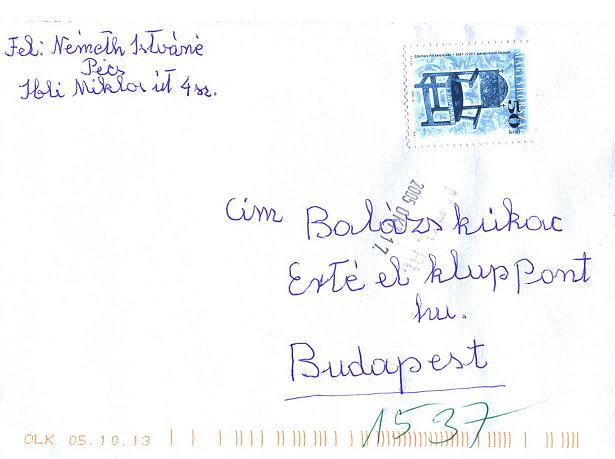 Fel: Németh Istváné
Pécs
Ibli Miklós út 4 sz.
50
2005 OKT 17
Cím Balázs kukac
Exté el klup Pont
hu.
Budapest
1537
OLK 05.10.13